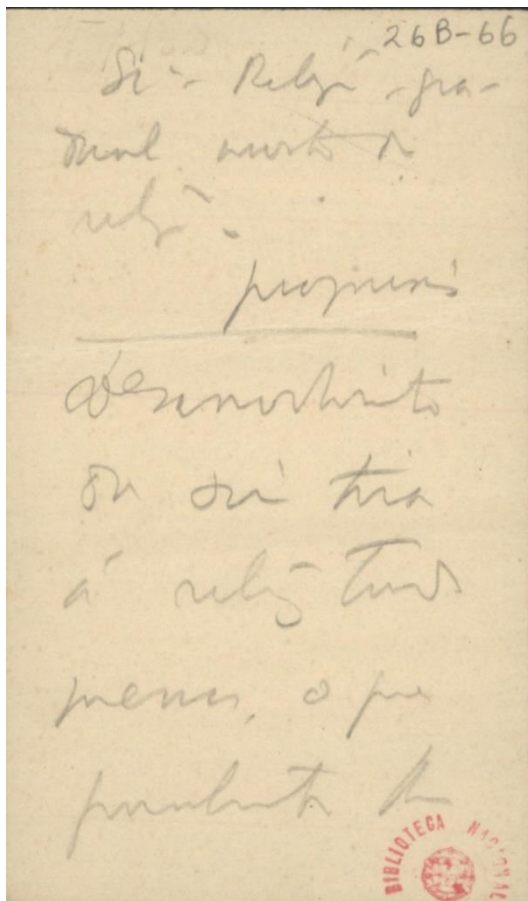 26B-66
Si - Relig. - gra-
dual morte da
relig.
progressos
Desenvolvimento
da sci tira
á relig tudo
menos, o que
BIBLIOTECA NACIONAL